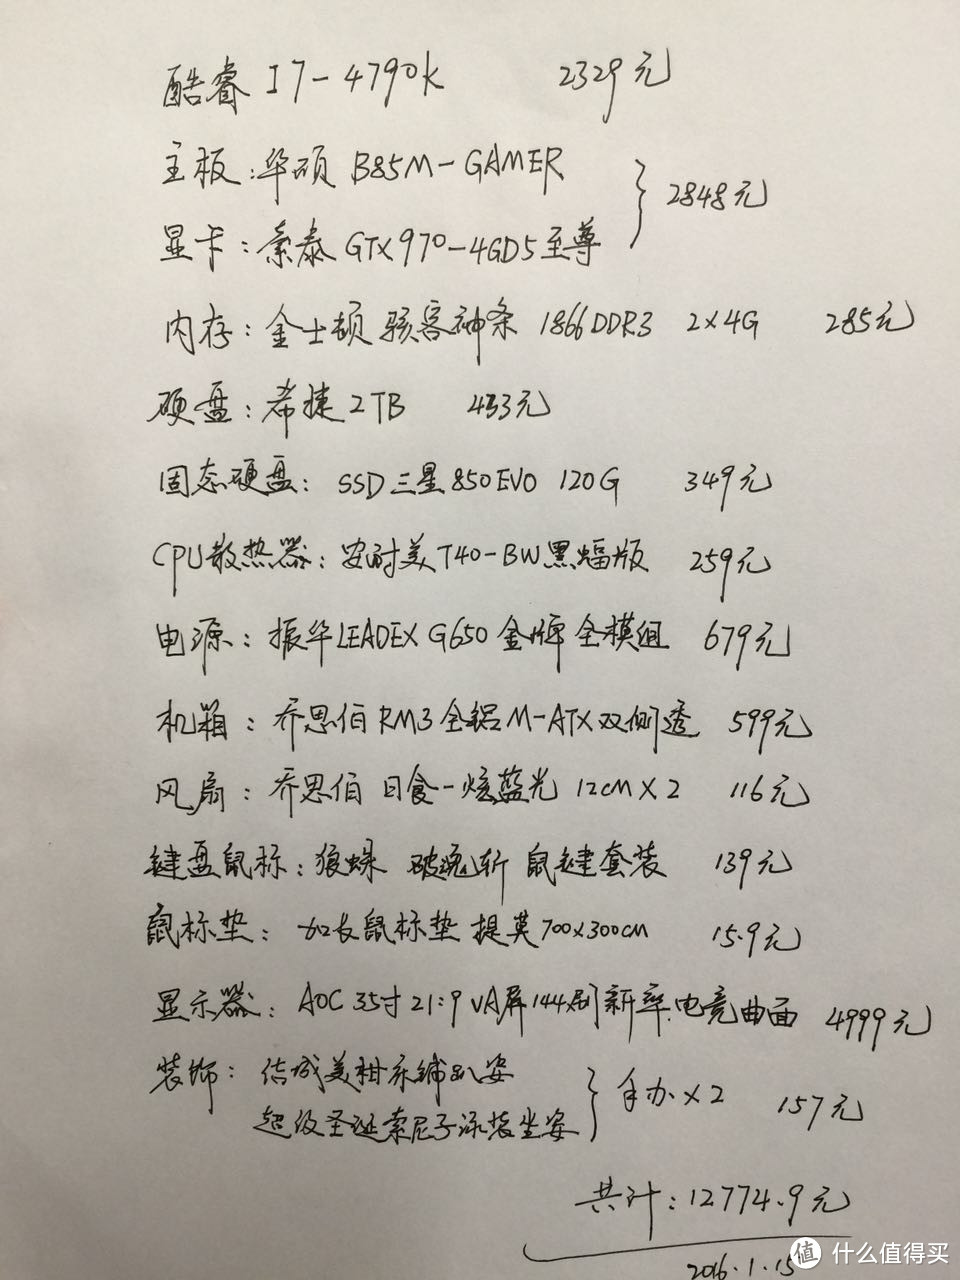 酷睿 I7-4790K 2329元
主板:华硕 B85M-GAMER
显卡:索泰 GTX970-4GD5至尊
2848元
内存:金士顿 骇客神条 1866DDR3 2×4G 285元
硬盘:希捷2TB 433元
固态硬盘: SSD三星850EVO 120G 349元
CPU散热器:安耐美T40-BW黑蝠版 259元
电源:振华LEADEX G650 金牌 全模组 679元
机箱:乔思伯RM3全铝M-ATX双侧透 599元
风扇:乔思伯 日食-炫蓝光 12CM×2 116元
键盘鼠标:狼蛛 破魂斩 鼠键套装 139元
鼠标垫:加长鼠标垫 提莫700×300cm 15.9元
显示器:AOC 35寸21:9 VA屏144刷新率,电竞曲面 4999元
装饰:结城美柑床铺趴姿
超级圣诞索尼子泳装坐姿
手办×2 157元
共计:12774.9元
2016.1.15
值 什么值得买